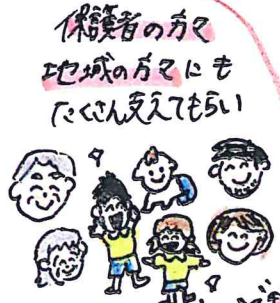 保護者の方々
地域の方々にも
たくさん支えてもらい